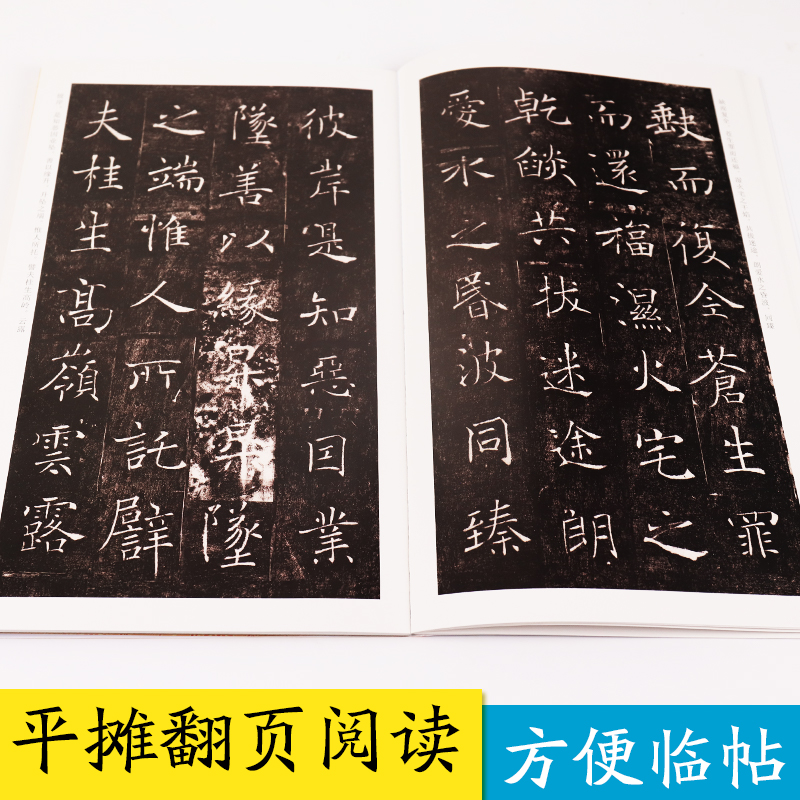 缺而復全蒼生罪
而還福濕火宅之
乾燄共拔迷途朗
愛水之昏波同臻
彼岸是知惡因業
墜善以緣昇昇墜
之端惟人所託譬
夫桂生高嶺雲露
平摊翻页阅读
方便临帖